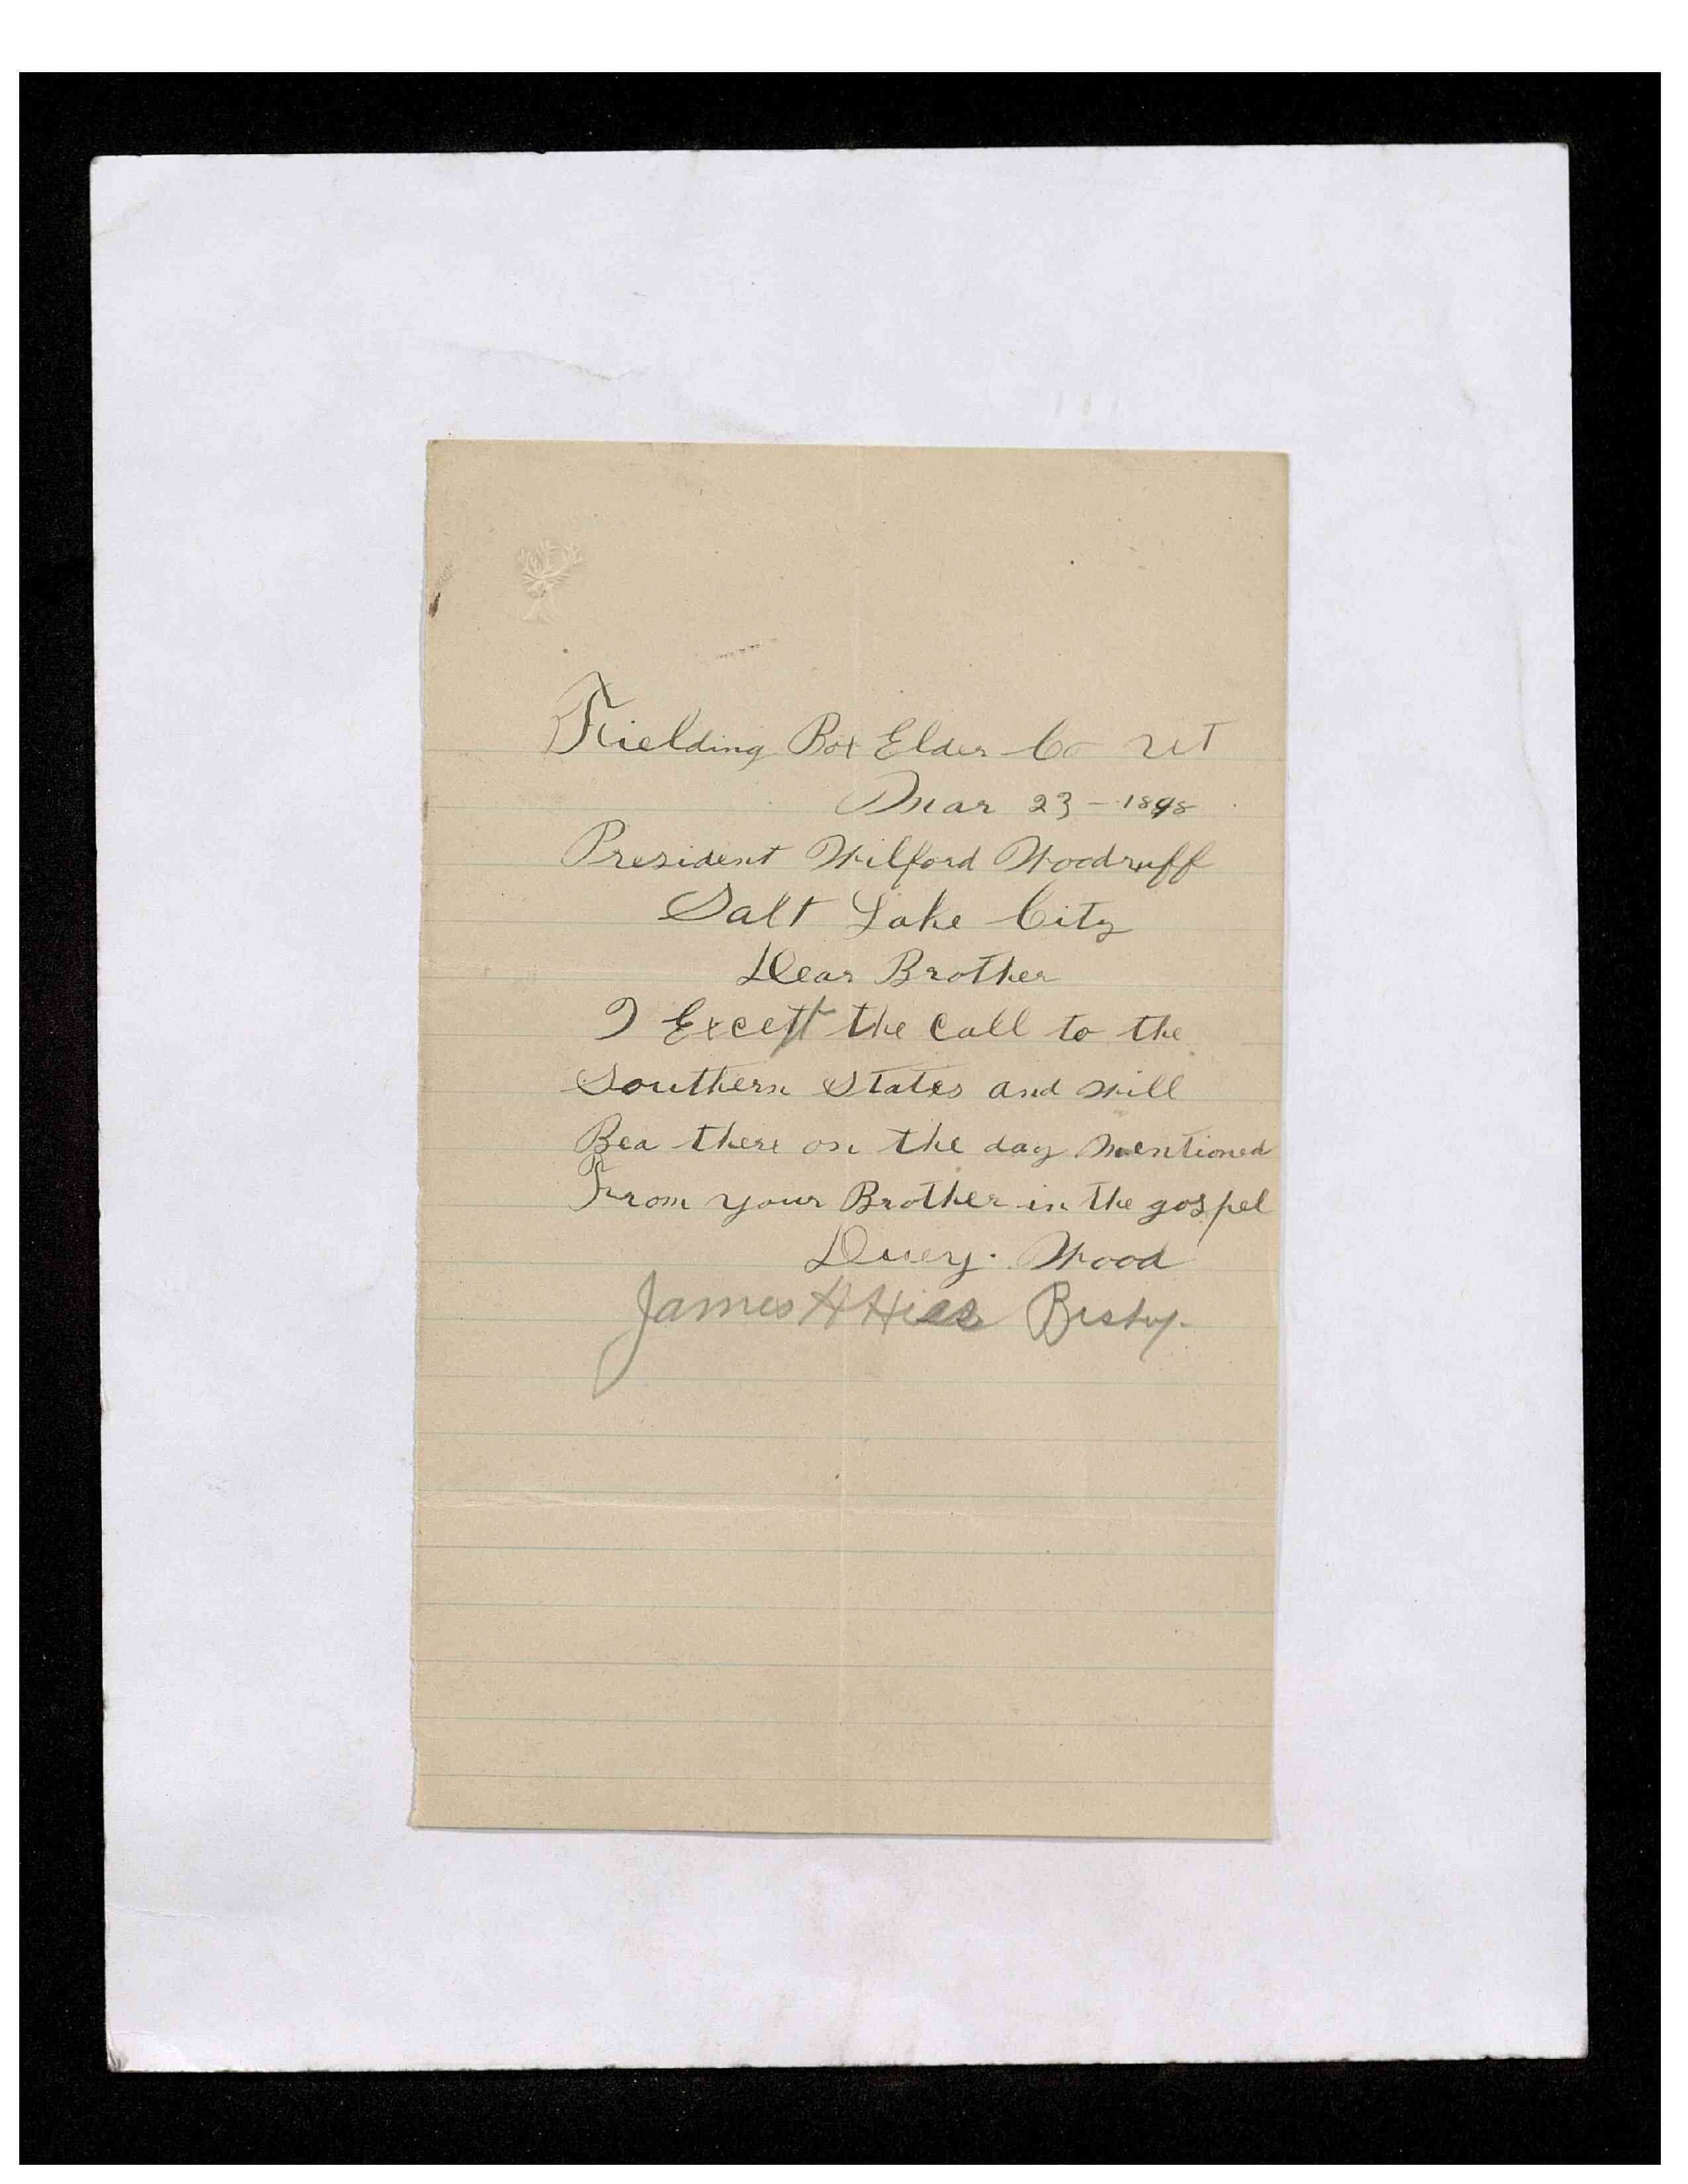 Fielding Box Elder Co UT
Mar 23 - 1898
President Wilford Woodruff
Salt Lake City
Dear Brother
I Excett the Call to the
Southern States and will
Bea there on the day mentioned
From your Brother in the gospel
Wood
James H Hess Bishop.